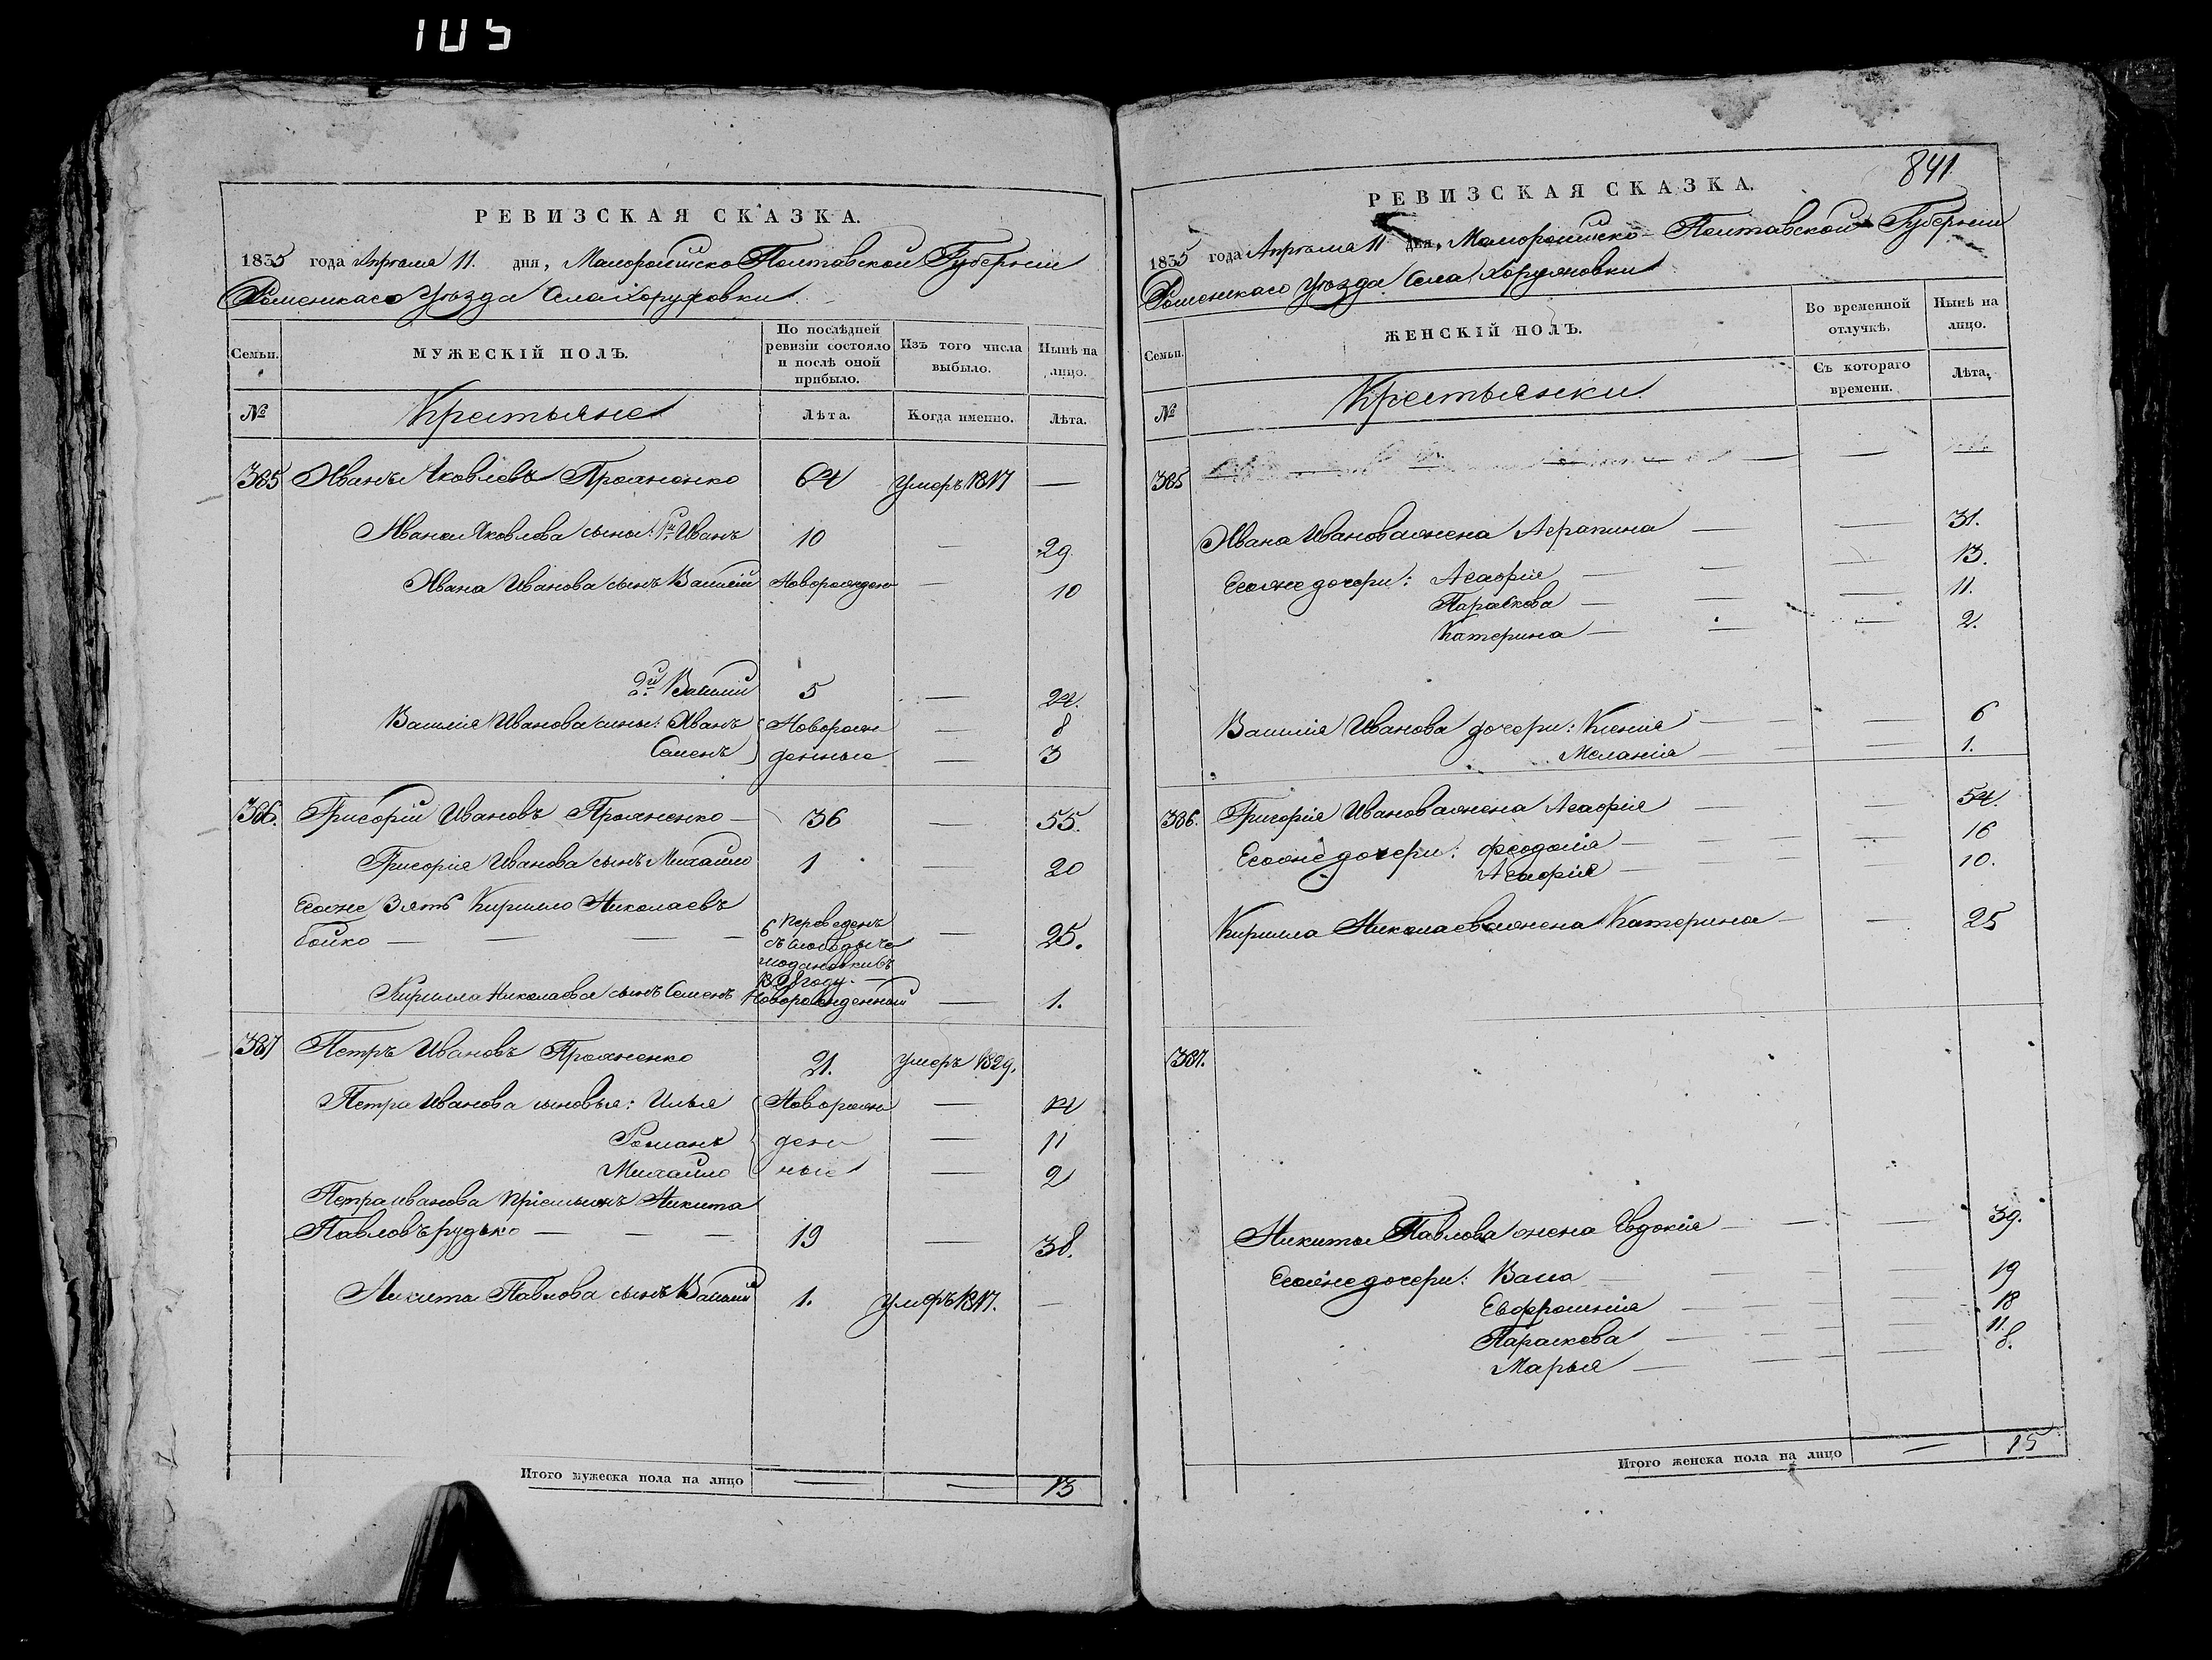 105
РЕВИЗСКАЯ СКАЗКА.
1835 года Апреля 11. дня, Малороссійско Полтавской Губерніи
Роменскаго Уѣзда Села Хоружовки
Семьи.
МУЖЕСКІЙ ПОЛЪ.
По послѣдней ревизіи состояло и послѣ оной прибыло.
Изъ того числа выбыло.
Нынѣ на лицо.
№
Крестьяне
Лѣта.
Когда именно.
Лѣта.
385 Иванъ Яковлевъ Проженко 64 умеръ 1817 —
Ивана Яковлева сыны: 1й Иванъ 10 — 29
Ивана Иванова сынъ Василій Новорожден — 10
2й Василій 5 — 24.
Василія Иванова сыны: Иванъ Новорож — 8
Семенъ денные — 3
386. Григорій Ивановъ Проженко — 36 — 55.
Григорія Иванова сынъ Михайло 1 — 20
Егоже Зять Кирилло Николаевъ
бойко — — — 6 переведенъ — 25.
съ слободы
въ
1828 году —
Кирилла Николаева сынъ Семенъ Новорожденный — 1.
387 Петръ Ивановъ Проженко 21. умеръ 1829.
Петра Иванова сыновья: Илья Новорож — 14
Романъ ден — 11
Михайло ные — 2
Петра иванова пріемышъ Никита
Павловъ рудько — — — 19 — 38.
Никиты Павлова сынъ Василій 1. умеръ 1817. —
Итого мужеска пола на лицо — — 13
841
РЕВИЗСКАЯ СКАЗКА.
1835 года Апреля 11 дня, Малороссійско — Полтавской Губерніи
Роменскаго Уѣзда Села Хоружовки
Семьи.
ЖЕНСКІЙ ПОЛЪ.
Во временной отлучкѣ.
Нынѣ на лицо.
№
Крестьянки.
Съ котораго времени.
Лѣта.
385
Ивана Иванова жена Агрипина — — 31.
Егоже дочери: Агафія — — — 13.
Параскова — — — 11.
Катерина — — — 2.
Василія Иванова дочери: Ксенія — — 6
Меланія — — — 1.
386. Григорія Иванова жена Агафія — — 54.
Егоже дочери: Феодосія — — — 16
Агафія — — — 10.
Кирилла Николаева жена Катерина — — 25
387.
Никиты Павлова жена Евдокія — — — 39.
Егоже дочери: Васса — — — 19
Евфросинія — — — 18
Параскова — — — 11.
Марья — — — 8.
Итого женска пола на лицо — 15